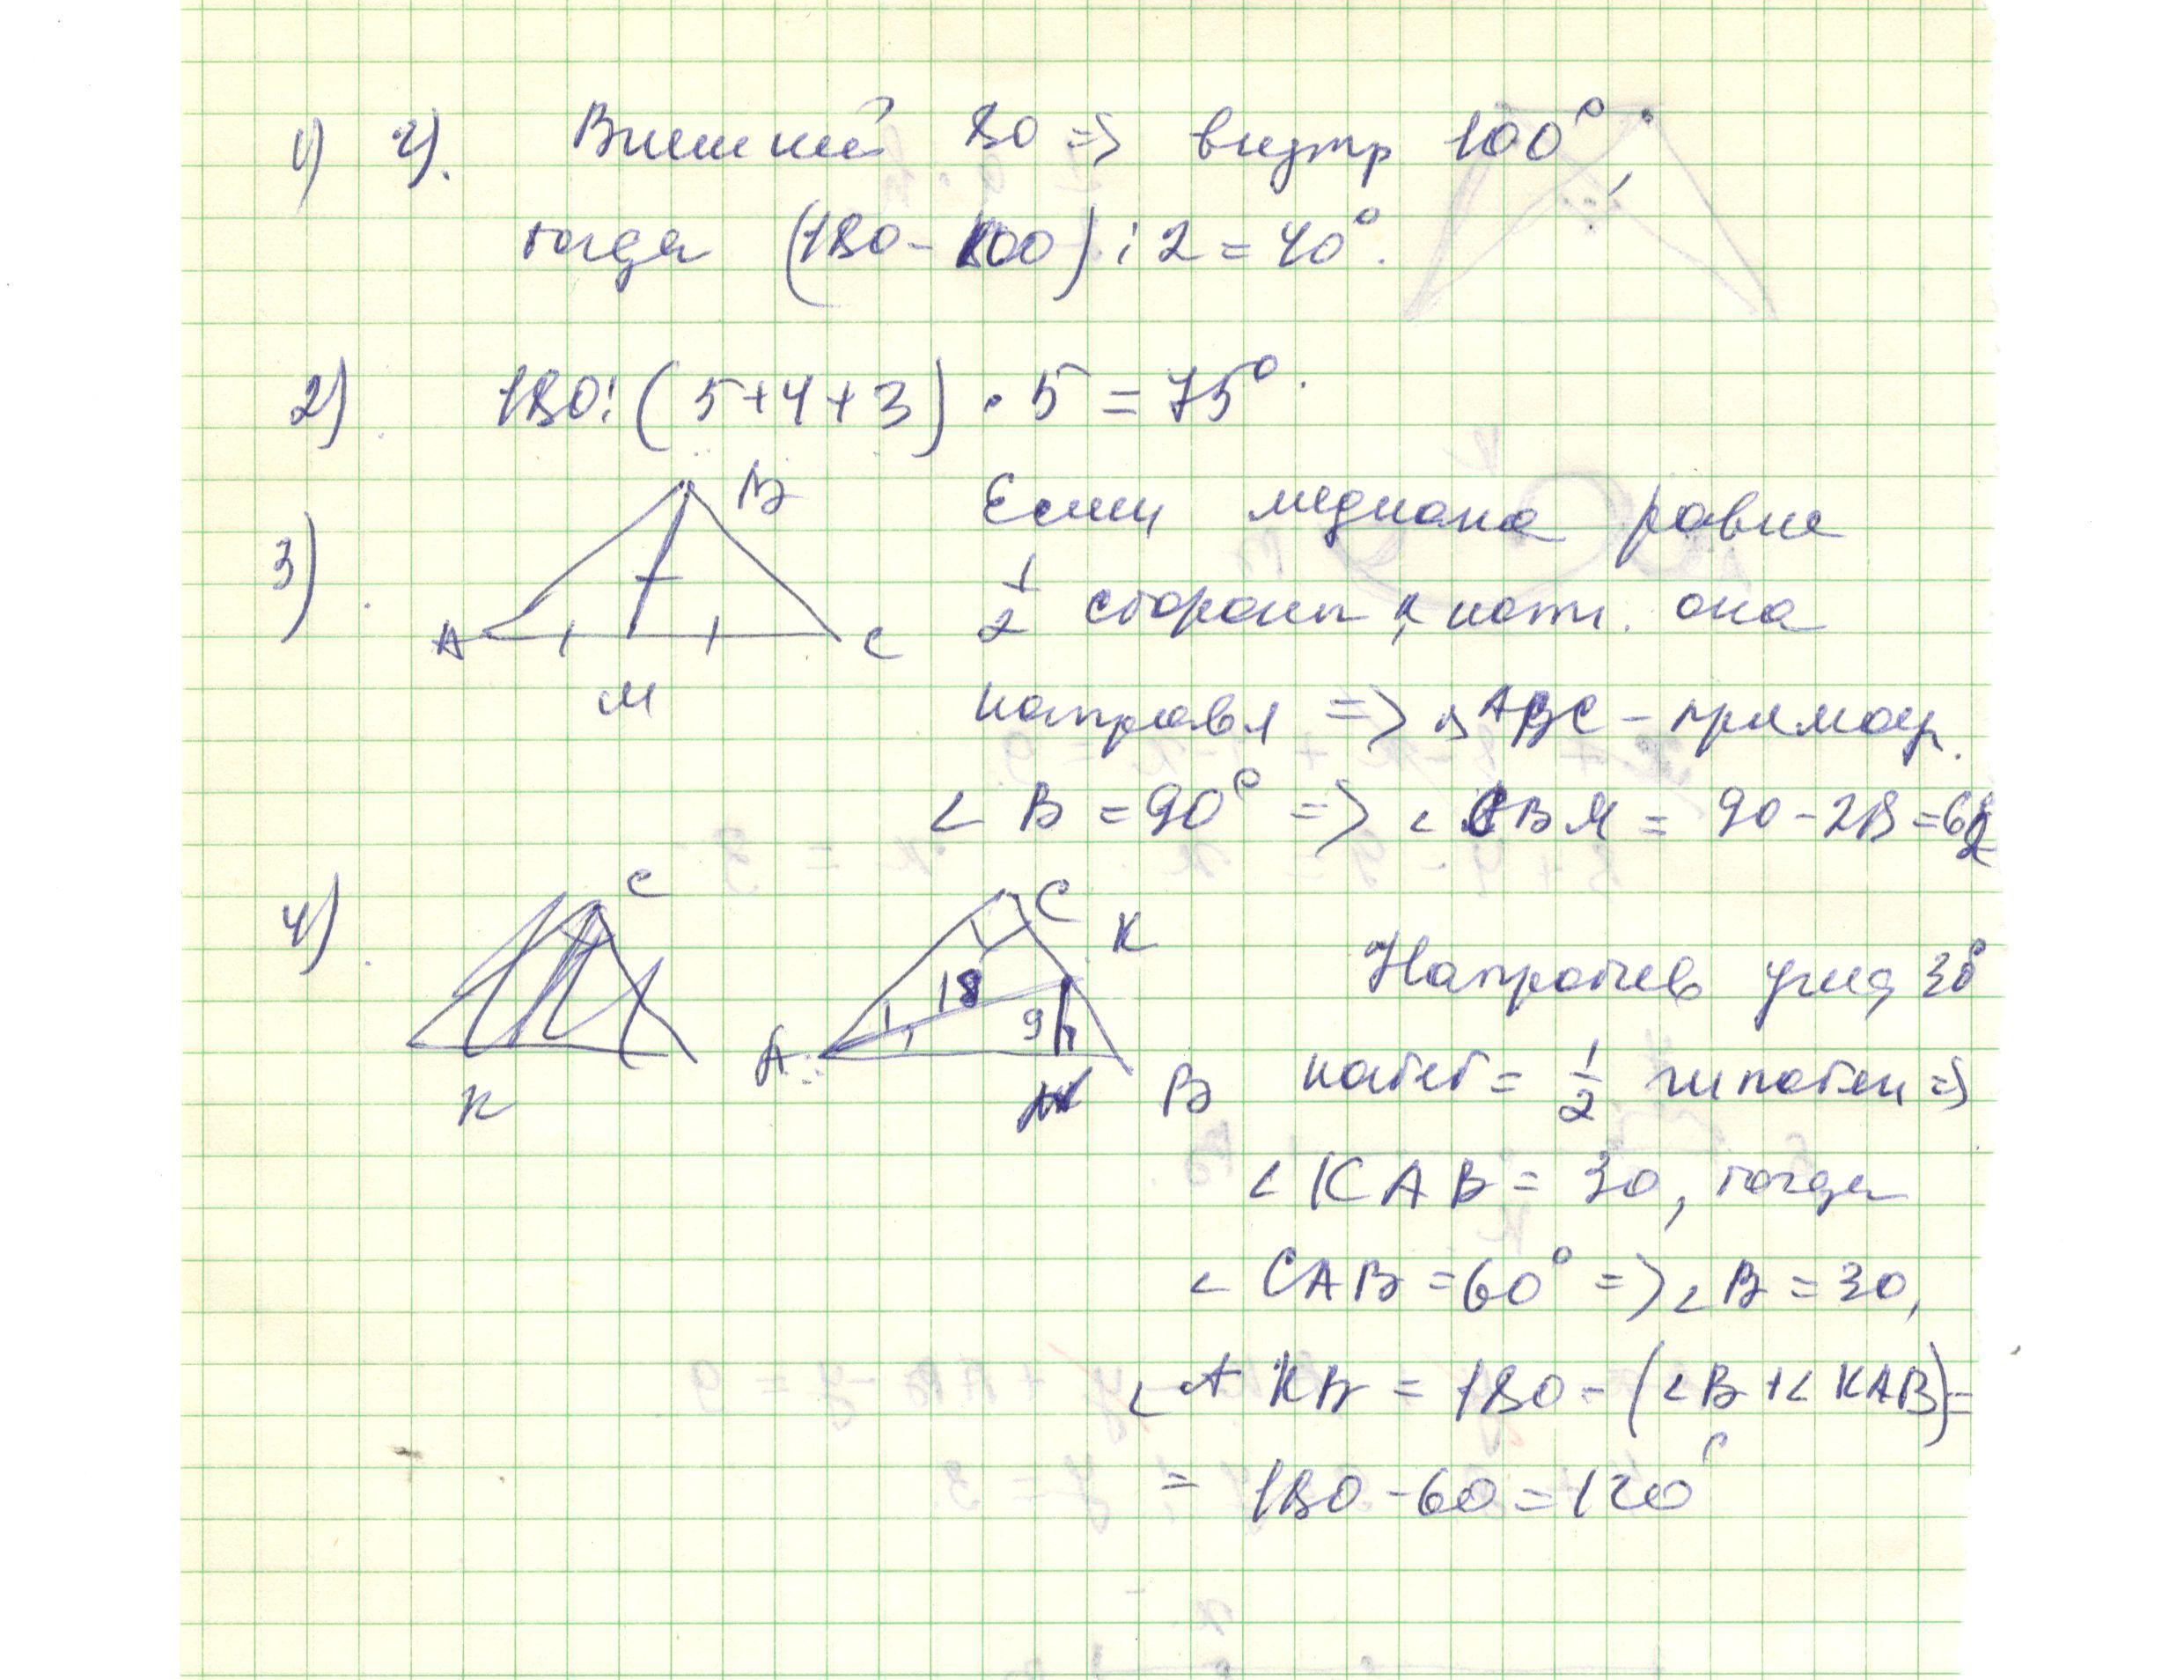 1) 2). Внешний 80 => внутр 100°,
тогда (180-100):2=40°.
2). 180:(5+4+3)·5=75°.
3).
B
A
C
M
Если медиана равна
1/2 стороны к кот. она
направл => △ABC - прямоуг.
∠B=90° => ∠CBM = 90-28=62
4).
C
K
C
K
18
9
A
H
B
Напротив угла 30°
катет = 1/2 гипотен =>
∠KAB = 30, тогда
∠CAB=60° => ∠B=30,
∠AKB = 180-(∠B+∠KAB)=
= 180-60=120°